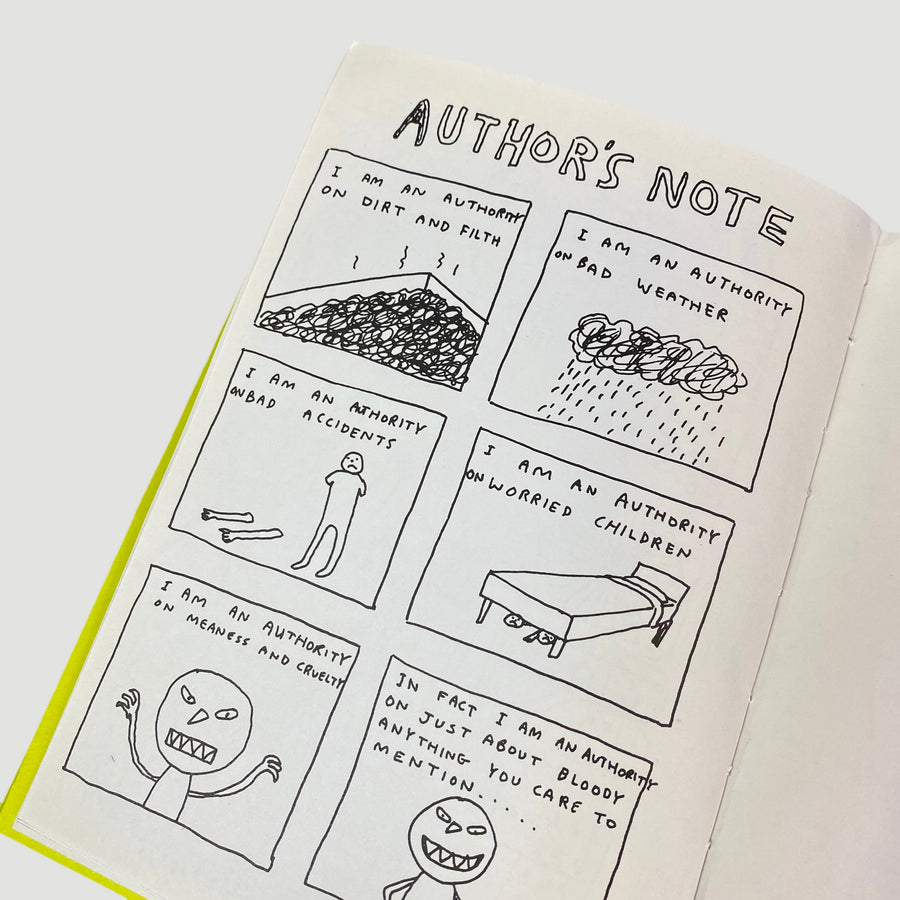 AUTHOR'S NOTE
I AM AN AUTHORITY
ON DIRT AND FILTH
I AM AN AUTHORITY
ON BAD WEATHER
I AM AN AUTHORITY
ON BAD ACCIDENTS
I AM AN AUTHORITY
ON WORRIED CHILDREN
I AM AN AUTHORITY
ON MEANESS AND CRUELTY
IN FACT I AM AN AUTHORITY
ON JUST ABOUT BLOODY
ANYTHING YOU CARE TO
MENTION.....